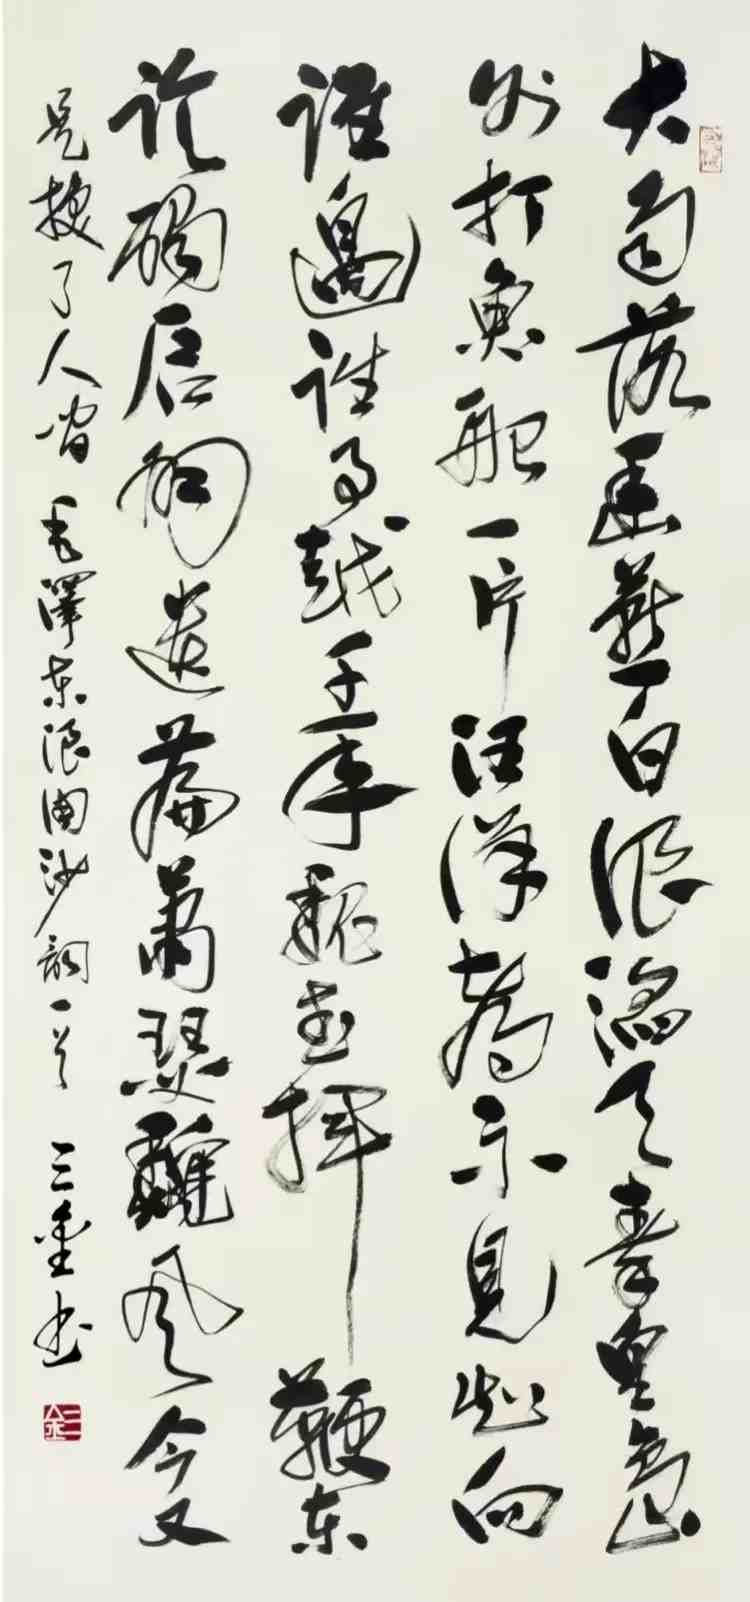 大雨落幽燕白浪滔天秦皇岛
外打鱼船一片汪洋都不见知向
谁邊往事越千年魏武挥鞭东
临碣石有遗篇萧瑟秋风今又
是换了人间 毛澤东浪淘沙词一首 三金书
三金